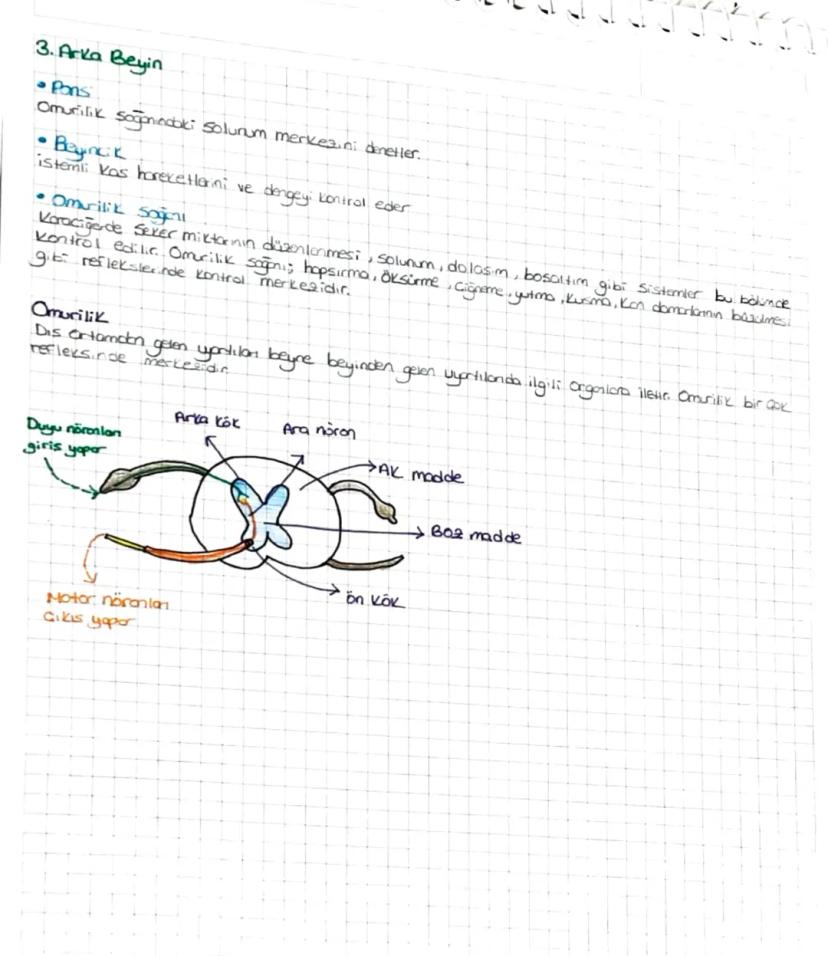 3. Arka Beyin
• Pons
Omurilik soğanındaki solunum merkezini denetler.
• Beyincik
istemli kas hareketlerini ve dengeyi kontrol eder
• Omurilik soğanı
Karaciğerde şeker miktarının düzenlenmesi, solunum, dolaşım, boşaltım gibi sistemler bu bölümde
kontrol edilir. Omurilik soğanı; hapşırma, öksürme, çiğneme, yutma, kusma, kan damarlarının büzülmesi
gibi reflekslerinde kontrol merkezidir.
Omurilik
Dış ortamdan gelen uyartıları beyne beyinden gelen uyartılarıda ilgili organlara iletir. Omurilik bir çok
refleksinde merkezidir
Arka kök
Ara nöron
Duyu nöronları
giriş yapar
Ak madde
Boz madde
Motor nöronları
çıkış yapar
ön kök